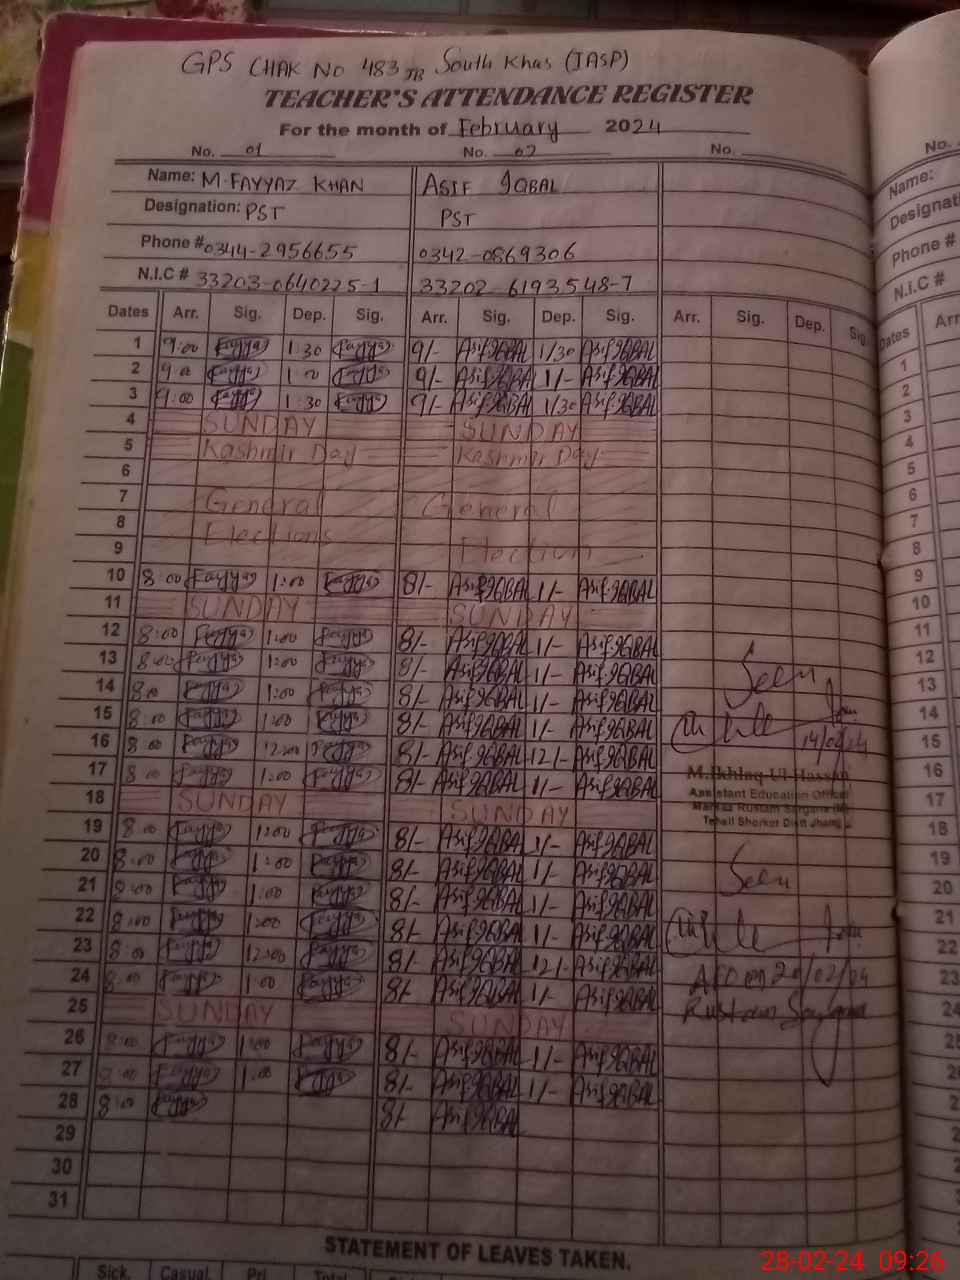 GPS CHAK NO 483 JB South Khas (JASP)
TEACHER'S ATTENDANCE REGISTER
For the month of February 2024
No. 01 No. 02 No.
Name: M. FAYYAZ KHAN ASIF IQBAL
Designation: PST PST
Phone # 0344-2956655 0342-0869306
N.I.C # 33203-0640225-1 33202-6193548-7
Dates Arr. Sig. Dep. Sig. Arr. Sig. Dep. Sig. Arr. Sig. Dep. Sig.
1 9:00 Fayyaz 1:30 Fayyaz 9/- Asif IQBAL 1/30 Asif IQBAL
2 9:00 Fayyaz 1:00 Fayyaz 9/- Asif IQBAL 1/- Asif IQBAL
3 9:00 Fayyaz 1:30 Fayyaz 9/- Asif IQBAL 1/30 Asif IQBAL
4 SUNDAY SUNDAY
5 Kashmir Day Kashmir Day
6
7 General General
8 Elections
9 Election
10 8:00 Fayyaz 1:00 Fayyaz 8/- Asif IQBAL 1/- Asif IQBAL
11 SUNDAY SUNDAY
12 8:00 Fayyaz 1:00 Fayyaz 8/- Asif IQBAL 1/- Asif IQBAL
13 8:00 Fayyaz 1:00 Fayyaz 8/- Asif IQBAL 1/- Asif IQBAL
14 8:00 Fayyaz 1:00 Fayyaz 8/- Asif IQBAL 1/- Asif IQBAL
15 8:00 Fayyaz 1:00 Fayyaz 8/- Asif IQBAL 1/- Asif IQBAL
16 8:00 Fayyaz 12:00 Fayyaz 8/- Asif IQBAL 12/- Asif IQBAL
17 8:00 Fayyaz 1:00 Fayyaz 8/- Asif IQBAL 1/- Asif IQBAL
18 SUNDAY SUNDAY
19 8:00 Fayyaz 1:00 Fayyaz 8/- Asif IQBAL 1/- Asif IQBAL
20 8:00 Fayyaz 1:00 Fayyaz 8/- Asif IQBAL 1/- Asif IQBAL
21 8:00 Fayyaz 1:00 Fayyaz 8/- Asif IQBAL 1/- Asif IQBAL
22 8:00 Fayyaz 1:00 Fayyaz 8/- Asif IQBAL 1/- Asif IQBAL
23 8:00 Fayyaz 12:00 Fayyaz 8/- Asif IQBAL 12/- Asif IQBAL
24 8:00 Fayyaz 1:00 Fayyaz 8/- Asif IQBAL 1/- Asif IQBAL
25 SUNDAY SUNDAY
26 8:00 Fayyaz 1:00 Fayyaz 8/- Asif IQBAL 1/- Asif IQBAL
27 8:00 Fayyaz 1:00 Fayyaz 8/- Asif IQBAL 1/- Asif IQBAL
28 8:00 Fayyaz 8/- Asif IQBAL
29
30
31
Seen
14/02/24
M. Ikhlaq-Ul-Hassan
Assistant Education Officer
Markaz Rustam Sargana (M)
Tehsil Shorkot Distt Jhang
Seen
AEO on 20/02/24
Rustam Sargana
STATEMENT OF LEAVES TAKEN.
Sick. Casual Pri. Total
No.
Name:
Designati
Phone #
N.I.C #
Dates Arr
1
2
3
4
5
6
7
8
9
10
11
12
13
14
15
16
17
18
19
20
21
22
23
24
28-02-24 09:26